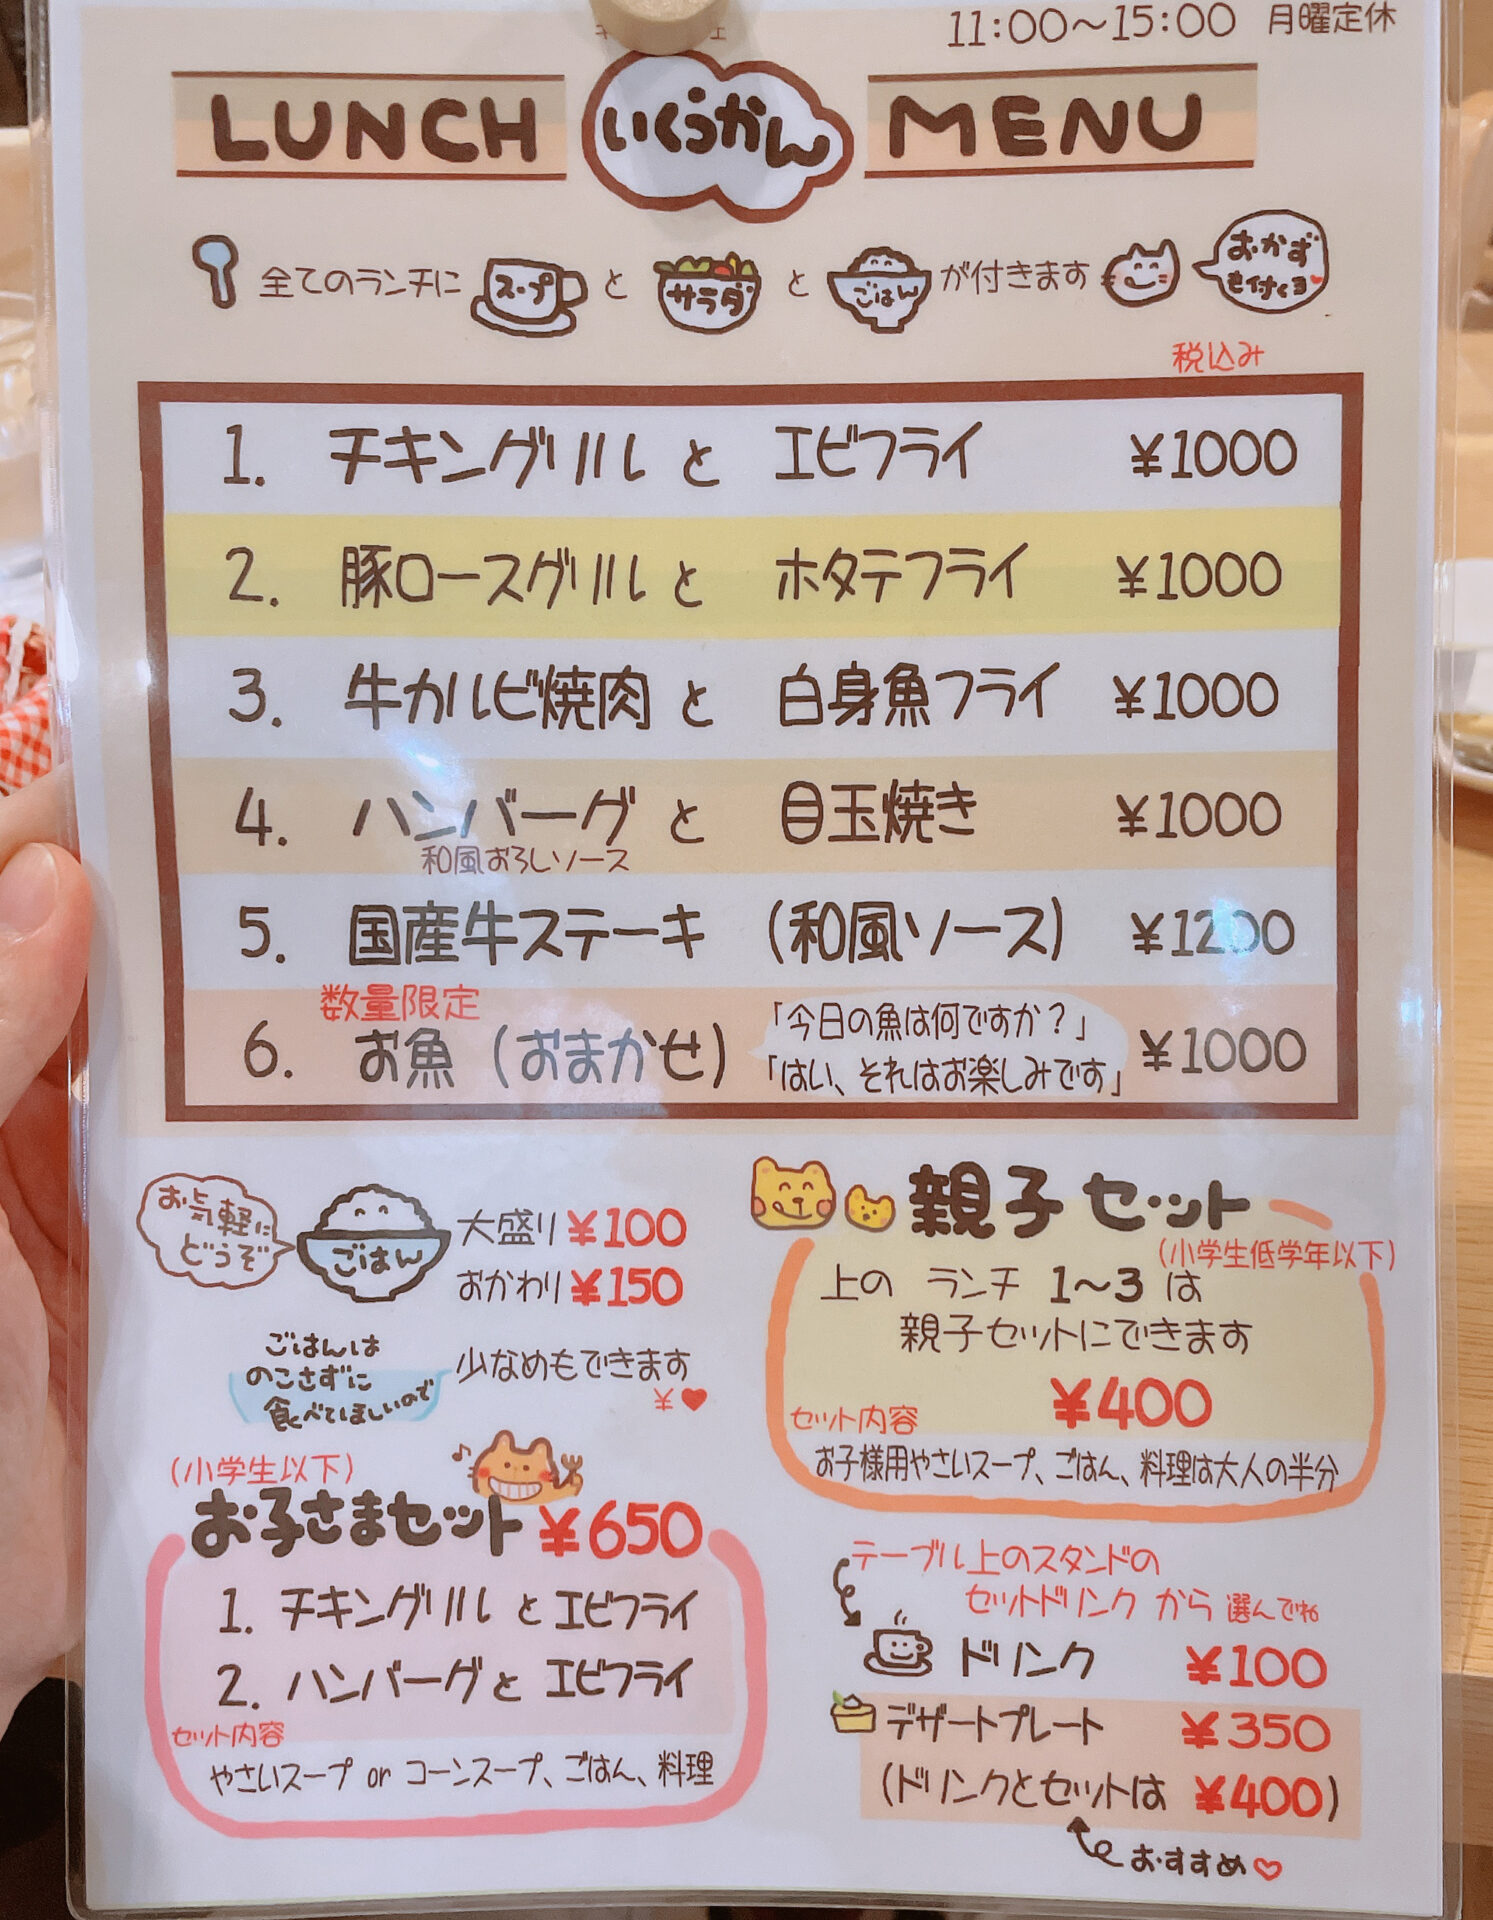 11:00～15:00 月曜定休
LUNCH いくうかん MENU
全てのランチに スープ と サラダ と ごはん が付きます
おかず
も付くヨ
税込み
1. チキングリル と エビフライ ¥1000
2. 豚ロースグリル と ホタテフライ ¥1000
3. 牛カルビ焼肉 と 白身魚フライ ¥1000
4. ハンバーグ と 目玉焼き ¥1000
和風おろしソース
5. 国産牛ステーキ (和風ソース) ¥1200
数量限定
6. お魚 (おまかせ) ¥1000
「今日の魚は何ですか？」
「はい、それはお楽しみです」
お気軽に
どうぞ
ごはん
大盛り ¥100
おかわり ¥150
ごはんは
のこさずに
食べてほしいので
少なめもできます
¥♥
親子セット
(小学生低学年以下)
上の ランチ 1～3 は
親子セットにできます
¥400
セット内容
お子様用やさいスープ、ごはん、料理は大人の半分
(小学生以下)
お子さまセット ¥650
1. チキングリル と エビフライ
2. ハンバーグ と エビフライ
セット内容
やさいスープ or コーンスープ、ごはん、料理
テーブル上のスタンドの
セットドリンク から 選んでね
ドリンク ¥100
デザートプレート ¥350
(ドリンクとセットは ¥400)
おすすめ♡